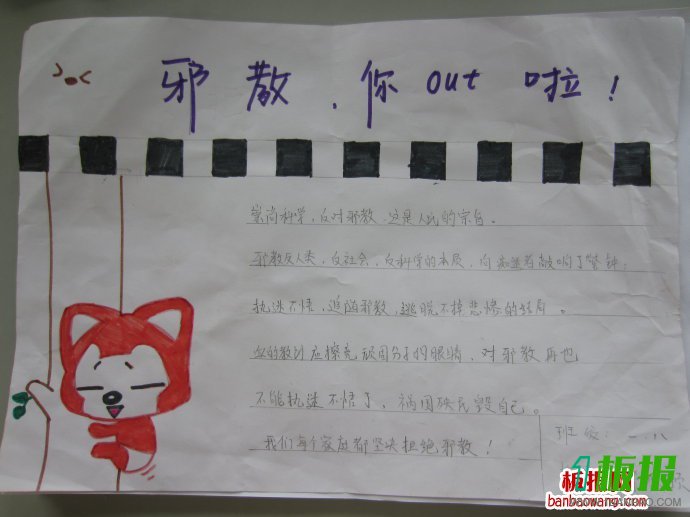 邪教,你out啦!
崇尚科学,反对邪教,这是人民的宗旨。
邪教反人类,反社会,反科学的本质,向痴迷者敲响了警钟。
执迷不悟,追随邪教,逃脱不掉悲惨的结局。
血的教训应擦亮顽固分子的眼睛,对邪教再也
不能执迷不悟了,祸国殃民毁自己。
我们每个家庭都坚决拒绝邪教!
班级:一.八
板报
banbaowang.com